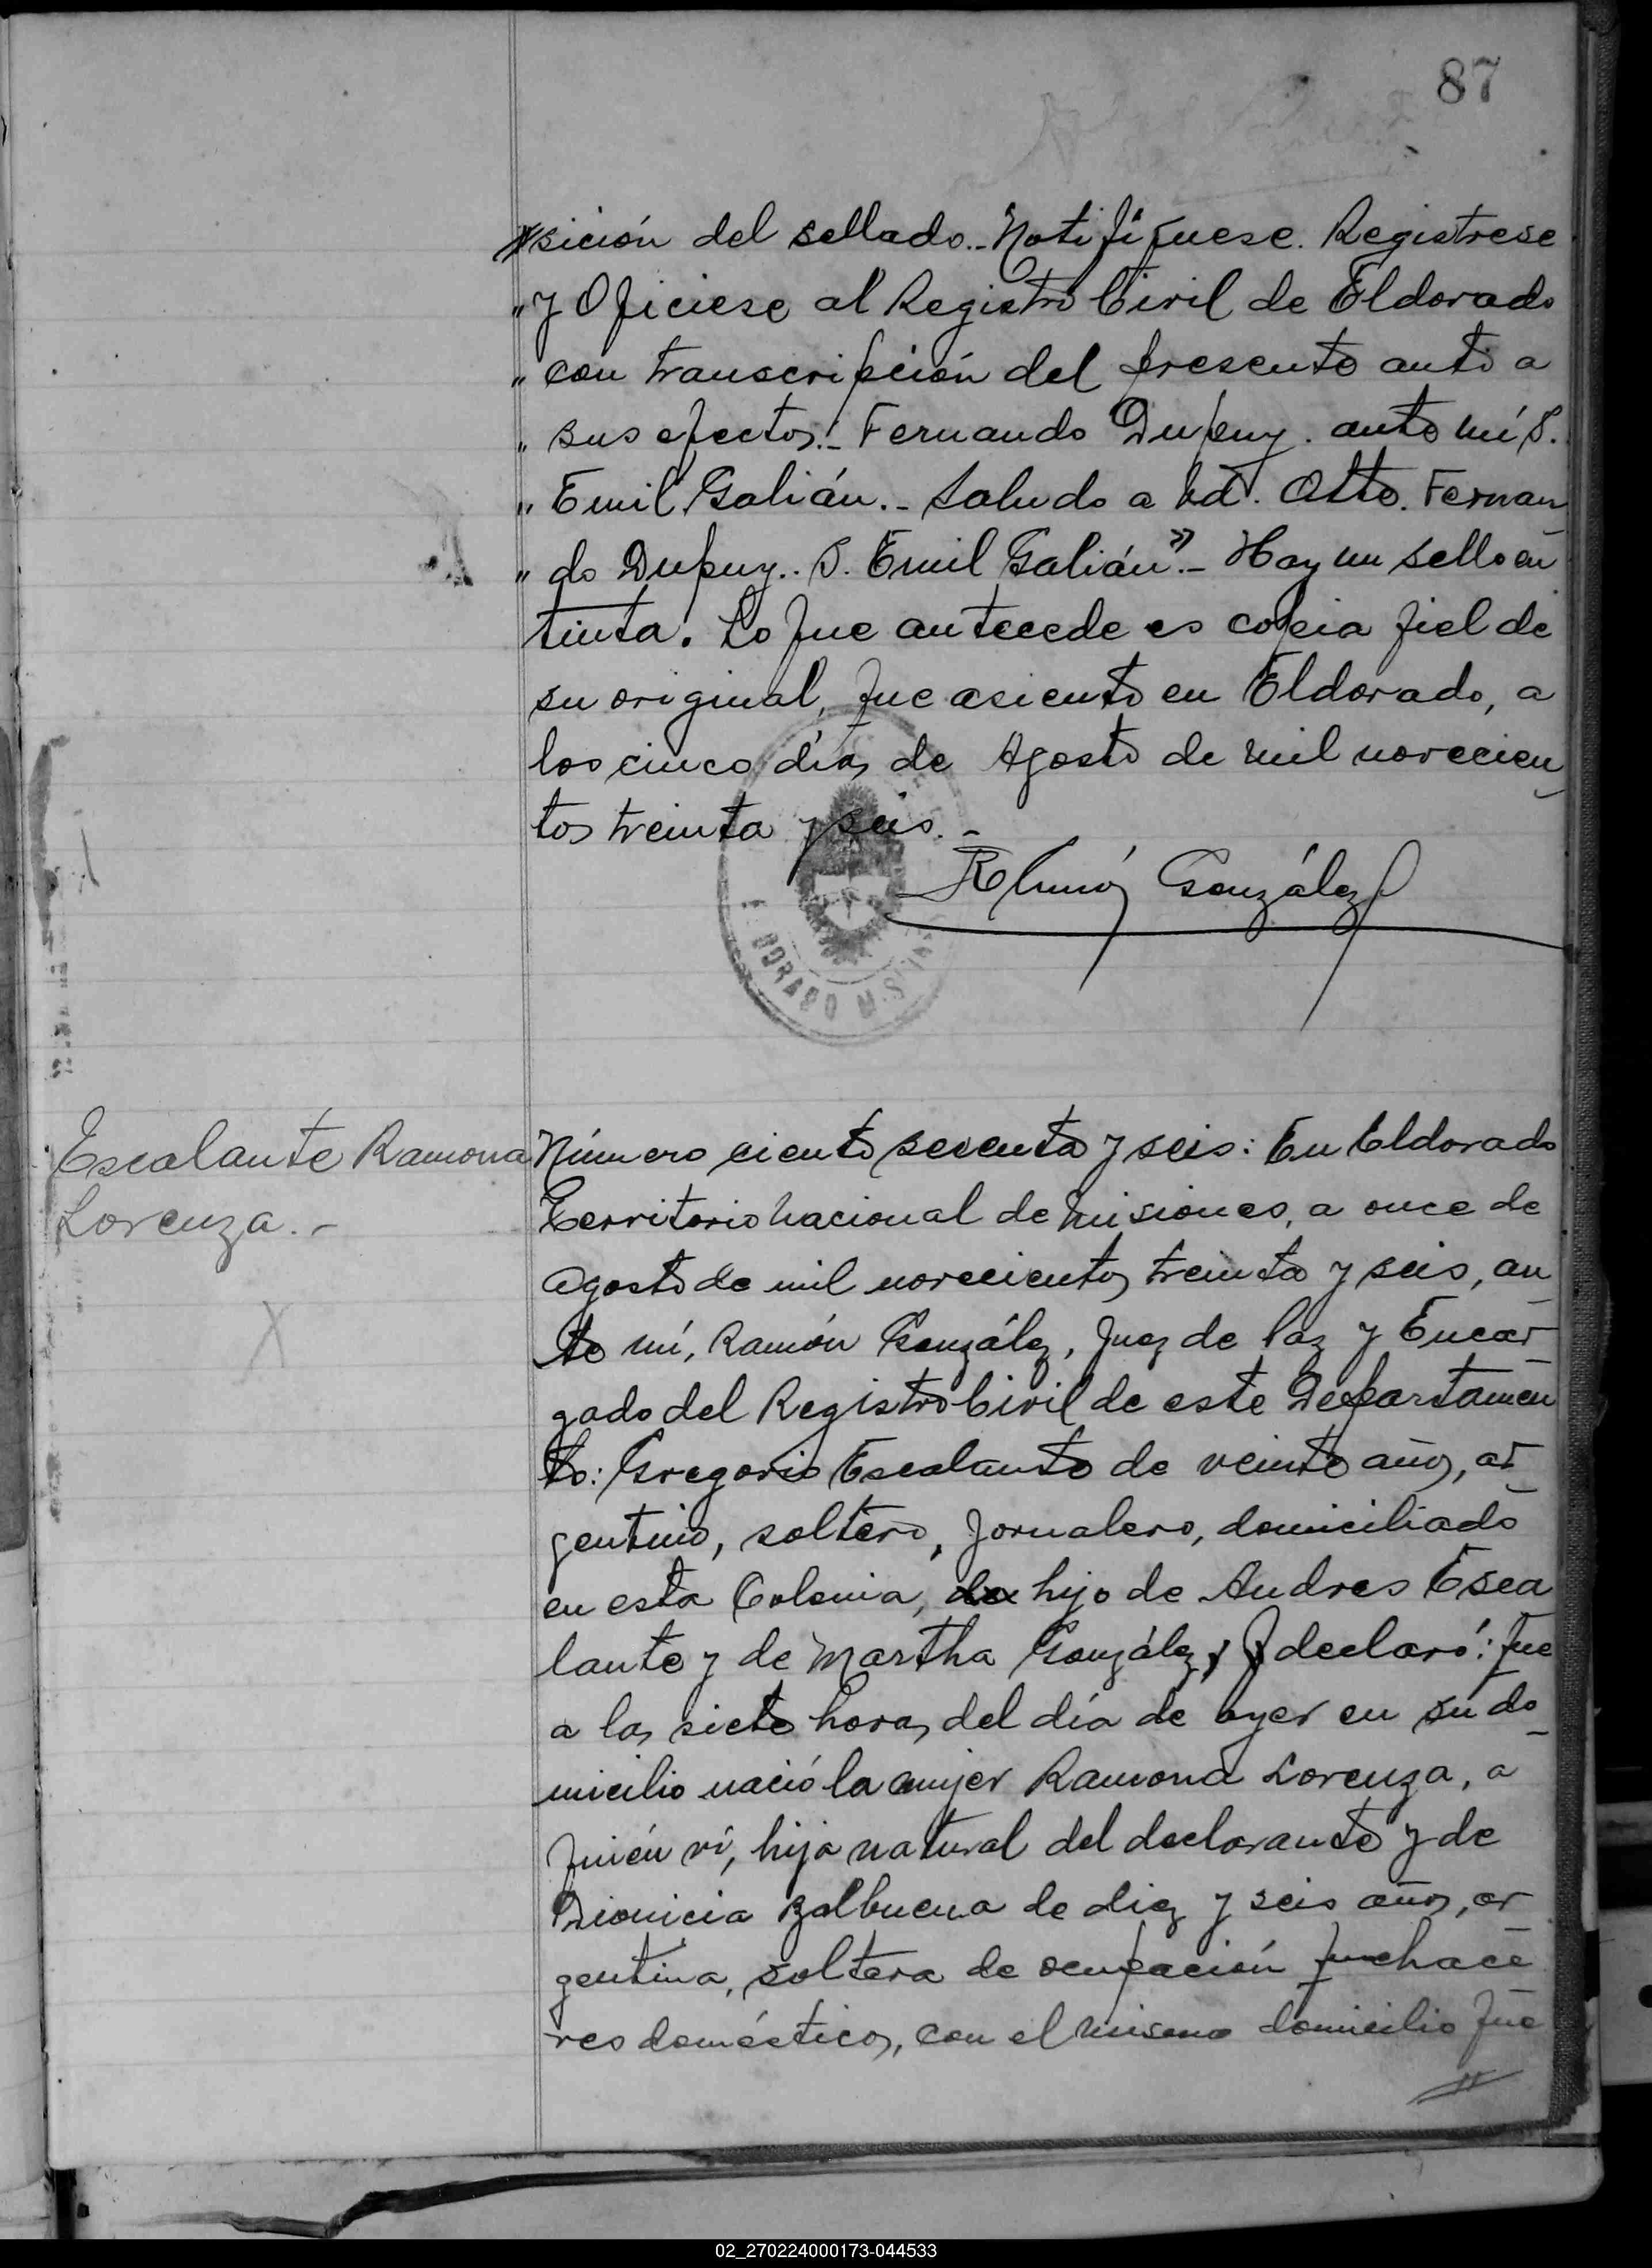 87
sición del sellado.- Notifíquese. Registrese
" y Oficiese al Registro Civil de Eldorado
" con transcripción del presente auto a
" sus efectos.- Fernando Dupuy. ante mí S.
" Emil Galián.- Saludo a Ud. Atte. Fernan
" do Dupuy.. S. Emil Galián".- Hay un sello en
tinta. Lo que antecede es copia fiel de
su original, que asiento en Eldorado, a
los cinco días de Agosto de mil novecien
tos treinta y seis.-
González
Escalante Ramona
Lorenza.-
X
Número ciento setenta y seis: En Eldorado
Territorio Nacional de Misiones, a once de
Agosto de mil novecientos treinta y seis, an
te mí, Ramón González, Juez de Paz y Encar
gado del Registro Civil de este Departamen
to: Gregorio Escalante de veinte años, ar
gentino, soltero, jornalero, domiciliado
en esta Colonia, hijo de Andres Esca
lante y de Martha González, declaró: que
a las siete horas del día de ayer en su do
micilio nació la mujer Ramona Lorenza, a
quién ví, hija natural del declarante y de
Dionicia Balbuena de diez y seis años, ar
gentina, soltera de ocupación quehace
res domésticos, con el mismo domicilio que
//
02_270224000173-044533